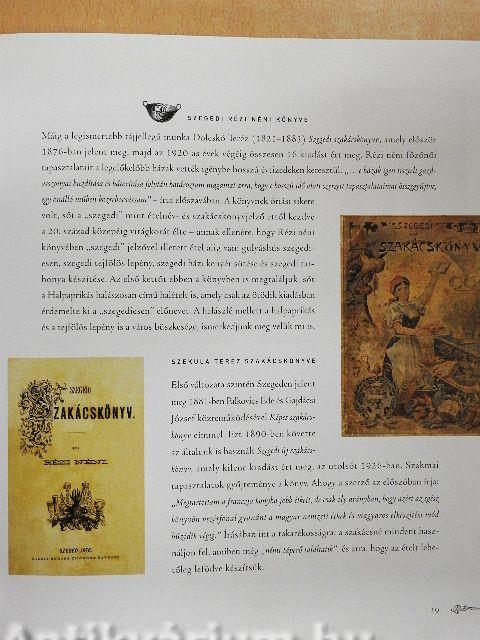 SZEGEDI RÉZI NÉNI KÖNYVE
Máig a legismertebb tájjellegű munka Doleskó Teréz (1821–1883) Szegedi szakácskönyve, amely először
1876-ban jelent meg, majd az 1920-as évek végéig összesen 16 kiadást ért meg. Rézi néni főzőnői
tapasztalatait a legelőkelőbb házak vették igénybe hosszú évtizedeken keresztül. „… e házak igen tisztelt gazd-
asszonyai buzdítása és bátorítása folytán határoztam magamat arra, hogy e hosszú idő alatt szerzett tapasztalataimat összegyűjtve,
egy önálló műben közrebocsássam” – írta előszavában. A könyvnek óriási sikere
volt, sőt a „szegedi” mint ételnév- és szakácskönyvjelző ettől kezdve
a 20. század közepéig virágkorát élte – annak ellenére, hogy Rézi néni
könyvében „szegedi” jelzővel illetett étel alig van: gulyáshús szegedi-
esen, szegedi tejfölös lepény, szegedi házi kenyér sütése és szegedi tar-
honya készítése. Az első kettőt ebben a könyvben is megtaláljuk, sőt
a Halpaprikás halászosan című halételt is, amely csak az ötödik kiadásban
érdemelte ki a „szegediesen” előnevet. A halászlé mellett a halpaprikás
és a tejfölös lepény is a város büszkesége, ismerkedjünk meg velük mi is.
SZEGEDI
SZAKÁCSKÖNYV
SZEKULA TERÉZ SZAKÁCSKÖNYVE
Első változata szintén Szegeden jelent
meg 1881-ben Palkovics Ede és Gajdácsi
József közreműködésével Képes szakács-
könyv címmel. Ezt 1890-ben követte
az általunk is használt Szegedi új szakács-
könyv, amely kilenc kiadást ért meg, az utolsót 1926-ban. Szakmai
tapasztalatok gyűjteménye a könyv. Ahogy a szerző az előszóban írja:
„Megtartottam a franczia konyha jobb ételeit, de csak oly arányban, hogy azért az egész
könyvön vezérfonal gyanánt a magyar nemzeti ételek és magyaros elkészítési mód
húzódik végig.” Írásában int a takarékosságra: a szakácsné mindent hasz-
náljon fel, amiben még „némi táperő találtatik”, és arra, hogy az ételt lehe-
tőleg lefödve készítsük.
SZEGEDI
SZAKÁCSKÖNYV.
RÉZI NÉNI.
SZEGED 1876.
19
Antikvárium.hu